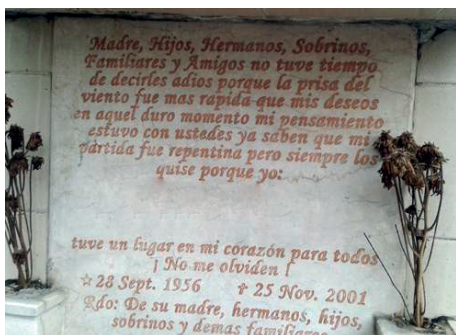 Madre, Hijos, Hermanos, Sobrinos,
Familiares y Amigos no tuve tiempo
de decirles adios porque la prisa del
viento fue mas rapida que mis deseos
en aquel duro momento mi pensamiento
estuvo con ustedes ya saben que mi
partida fue repentina pero siempre los
quise porque yo:
tuve un lugar en mi corazón para todos
¡ No me olviden !
☆ 28 Sept. 1956 ✞ 25 Nov. 2001
Rdo: De su madre, hermanos, hijos,
sobrinos y demas familiares